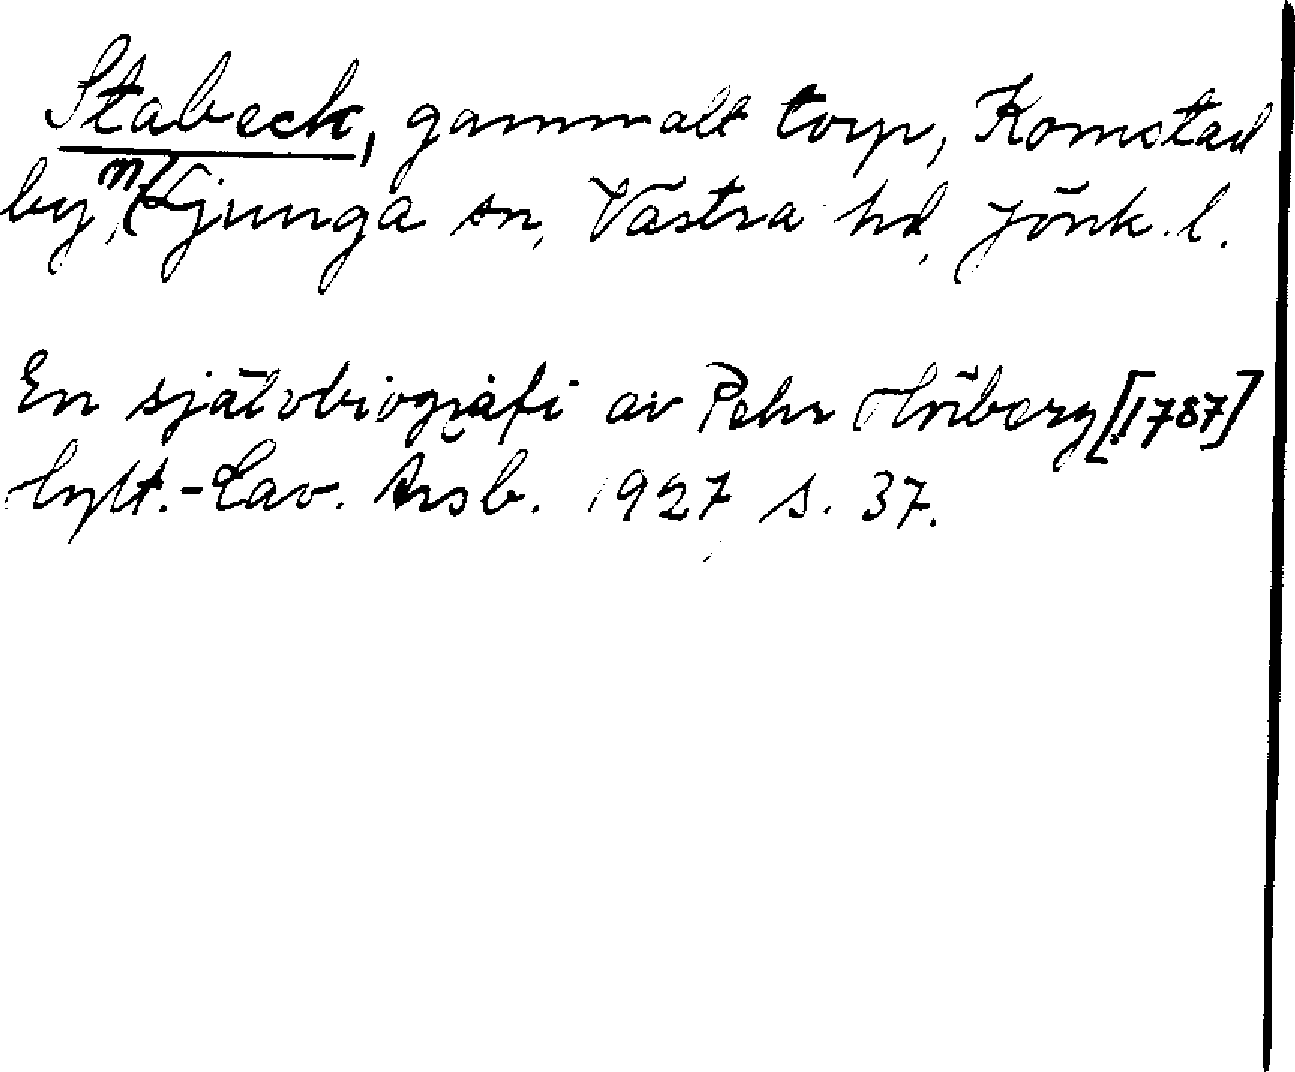 Stabeck, gammalt torp, Komstad
by, N Ljunga sn, Västra hd, Jönk. l.
En självbiografi av Pehr Hörberg [1787]
Hylt.-Cav. Årsb. 1927 s. 37.